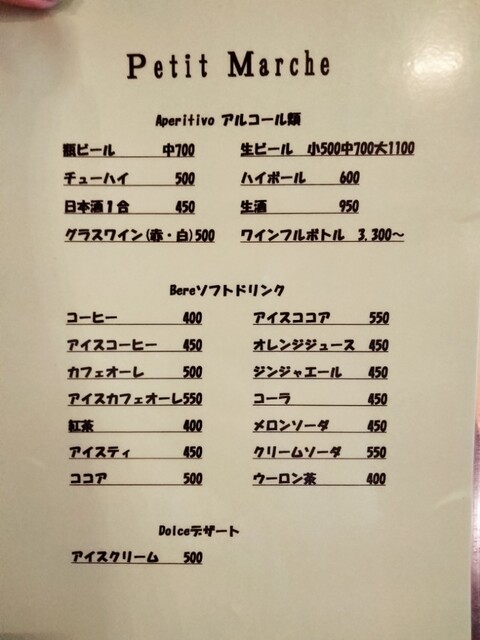 Petit Marche
Aperitivo アルコール類
瓶ビール 中700 生ビール 小500中700大1100
チューハイ 500 ハイボール 600
日本酒1合 450 生酒 950
グラスワイン(赤・白)500 ワインフルボトル 3,300〜
Bereソフトドリンク
コーヒー 400 アイスココア 550
アイスコーヒー 450 オレンジジュース 450
カフェオーレ 500 ジンジャエール 450
アイスカフェオーレ550 コーラ 450
紅茶 400 メロンソーダ 450
アイスティ 450 クリームソーダ 550
ココア 500 ウーロン茶 400
Dolceデザート
アイスクリーム 500